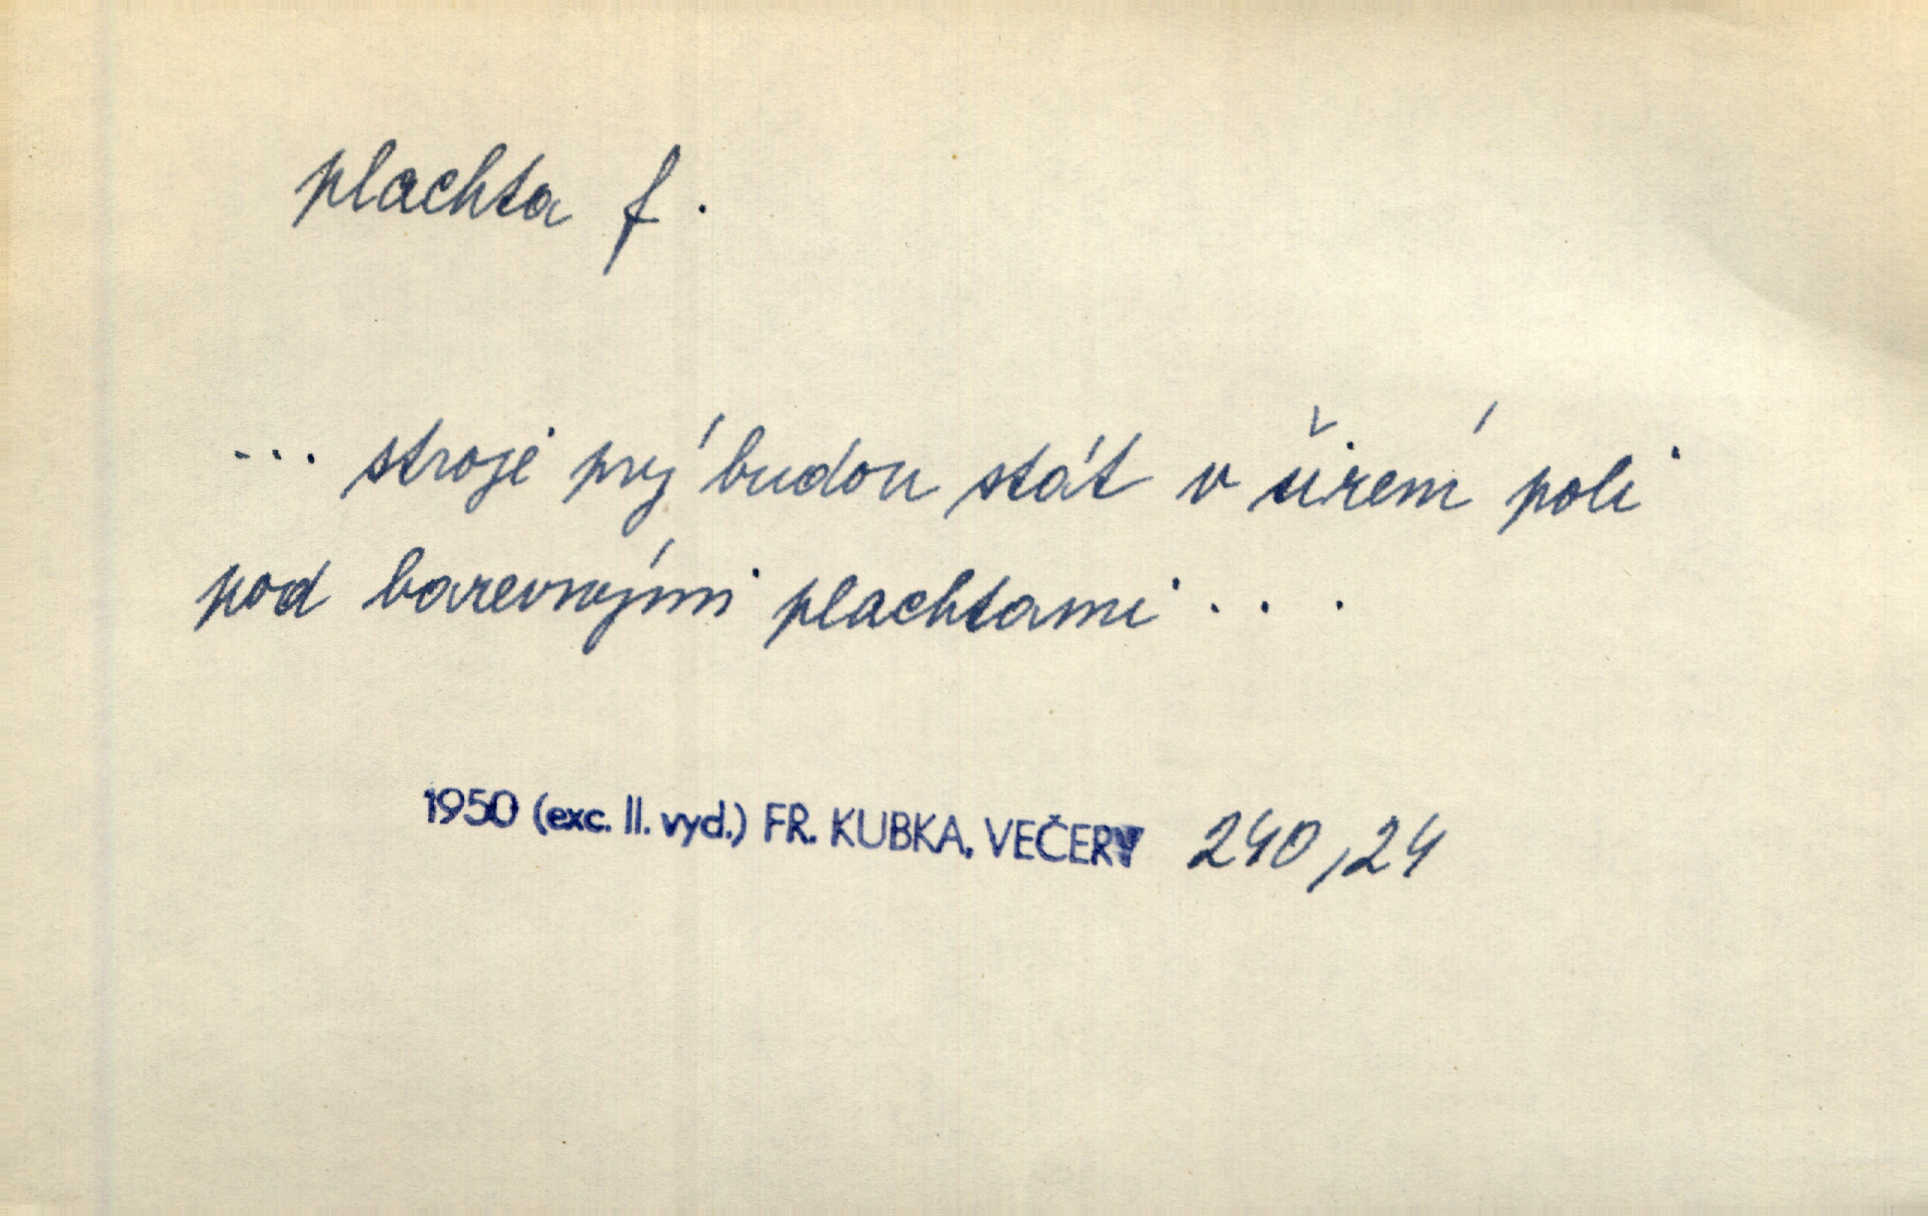 plachta f.
... stroje prý budou stát v širém poli
pod barevnými plachtami...
1950 (exc. II. vyd.) FR. KUBKA, VEČERY 240,24